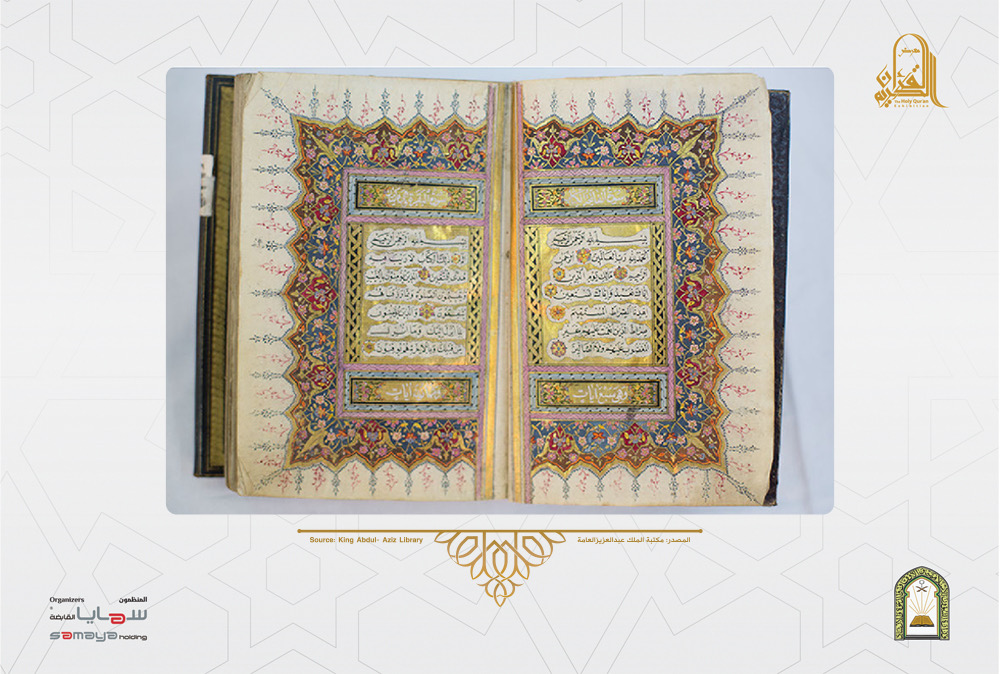 القرآن الكريم
The Holy Qur'an
Exhibition
بسم الله الرحمن الرحيم
الحمد لله رب العالمين الرحمن
الرحيم مالك يوم الدين
اياك نعبد واياك نستعين
اهدنا الصراط المستقيم
صراط الذين انعمت عليهم غير
المغضوب عليهم ولا الضالين
وهي سبع آيات
بسم الله الرحمن الرحيم
الم ذلك الكتاب لا ريب فيه
هدى للمتقين الذين يؤمنون بالغيب
ويقيمون الصلوة ومما رزقناهم
ينفقون والذين يؤمنون
بما انزل اليك وما انزل من
قبلك وبالاخرة هم يوقنون
المصدر: مكتبة الملك عبدالعزيز العامة
Source: King Abdul- Aziz Library
المنظمون
Organizers
سمايا القابضة
samaya holding